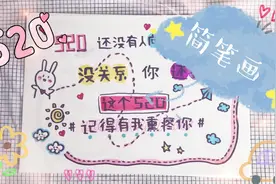 520
简笔画
520 还没有人
没关系 你
这个520
#记得有我熏疼你#